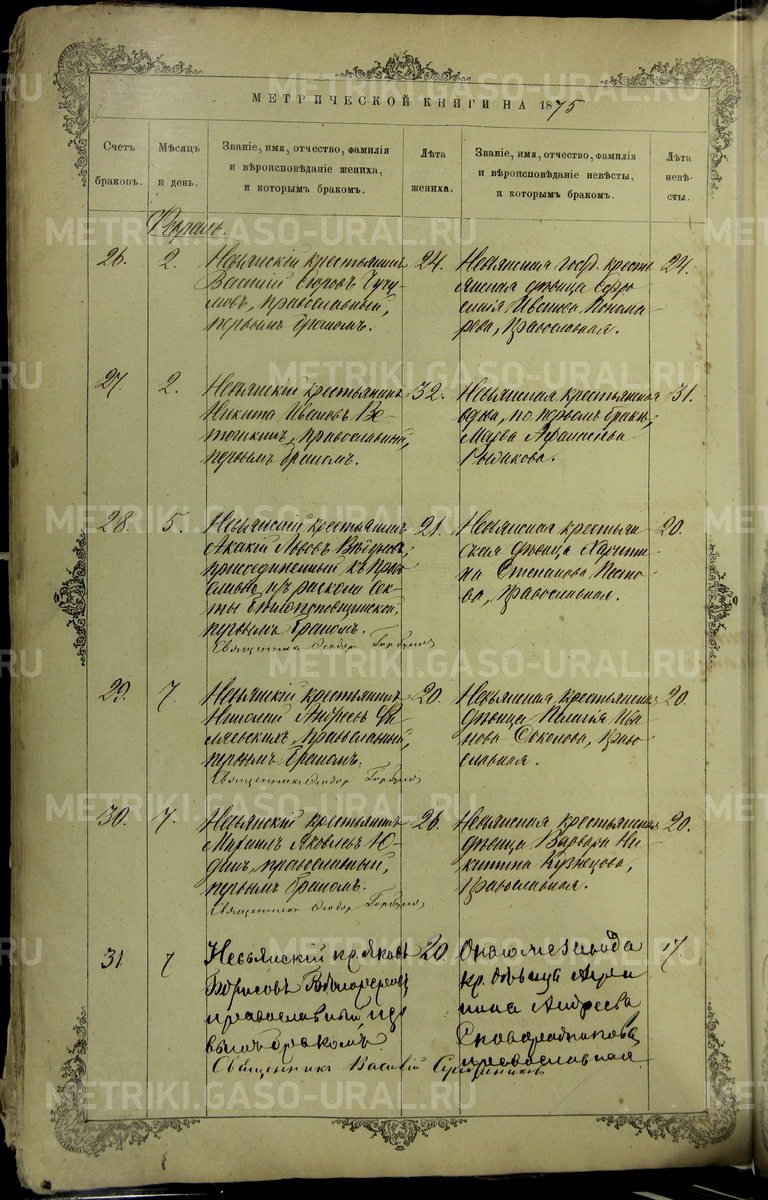 МЕТРИЧЕСКОЙ КНИГИ НА 1875
Счетъ браковъ.
Мѣсяцъ и день.
Званіе, имя, отчество, фамилія и вѣроисповѣданіе жениха, и которымъ бракомъ.
Лѣта жениха.
Званіе, имя, отчество, фамилія и вѣроисповѣданіе невѣсты, и которымъ бракомъ.
Лѣта невѣ-сты.
Февраль.
26. 2.
Невьянскій крестьянинъ
Василій
мовъ, православный,
первымъ бракомъ.
24.
Невьянская госуд. крестья
янская дѣвица Евфро-
синія Иванова Понома-
рева, православная.
24.
27. 2.
Невьянскій крестьянинъ
Никита Ивановъ Ве-
православный,
первымъ бракомъ.
32.
Невьянская крестьянская
вдова, по первомъ бракѣ,
Марва
31.
28. 5.
Невьянскій крестьянинъ
Акакій Львовъ
присоединенный къ Пра
изъ раскола сек-
ты
первымъ бракомъ.
Священникъ Ѳеодоръ
21.
Невьянская крестьян-
ская дѣвица Харити-
на Степанова Песто-
ва, православная.
20.
29. 7.
Невьянскій крестьянинъ
Николай Андреевъ
православный,
первымъ бракомъ.
Священникъ Ѳеодоръ
20.
Невьянская крестьянская
дѣвица Пелагія Ива-
нова Соколова, право-
славная.
20.
30. 7.
Невьянскій крестьянинъ
Михаилъ Яковлевъ Ю-
динъ, православный,
первымъ бракомъ.
Священникъ Ѳеодоръ
26.
Невьянская крестьянская
дѣвица Варвара Ни-
китина Кузнецова,
православная.
20.
31 7
Невьянскій кр. Яковъ
Борисовъ
православный пер
вымъ бракомъ
20.
Онаго же завода
кр. дѣвица
Андреева
Сковородникова
православная
17.
Священникъ Василій
METRIKI.GASO-URAL.RU